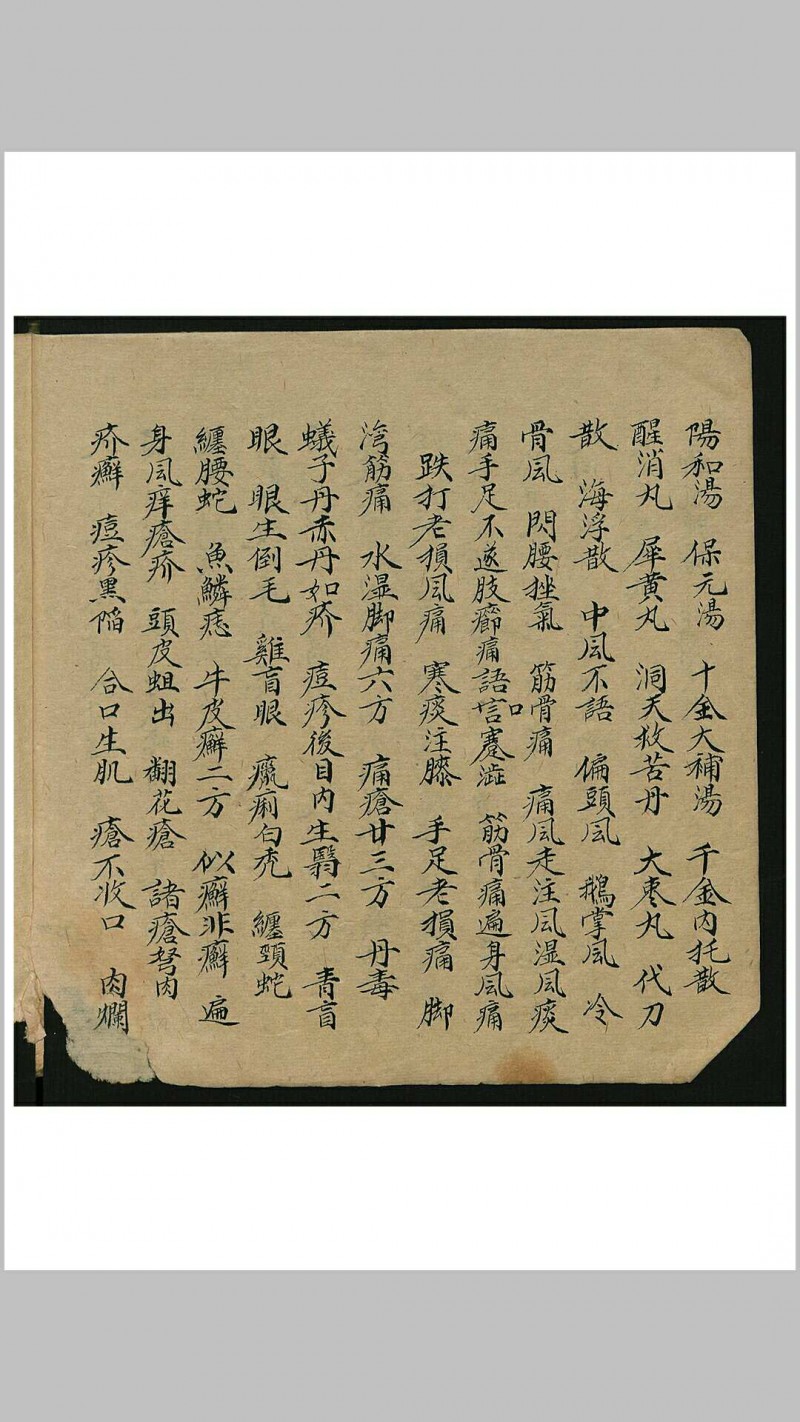 陽和湯　保元湯　十金大補湯　千金內托散
醒消丸　犀黃丸　洞天救苦丹　大棗丸　代刀
散　海浮散　中風不語　偏頭風　鵝掌風　冷
骨風　閃腰挫氣　筋骨痛　痛風走注風湿風痰
痛手足不遂肢癤痛語言蹇澁　筋骨痛遍身風痛
跌打老損風痛　寒痰注膝　手足老損痛　脚
湾筋痛　水湿脚痛六方　痛瘡廿三方　丹毒
蟻子丹赤丹如疥　痘疹後目內生翳二方　青盲
眼　眼生倒毛　雞盲眼　癘痢白秃　纏頸蛇
纏腰蛇　魚鱗痣　牛皮癬二方　似癬非癬　遍
身風痒瘡疥　頭皮蛆出　翻花瘡　諸瘡努肉
疥癬　痘疹黑陷　合口生肌　瘡不收口　肉爛